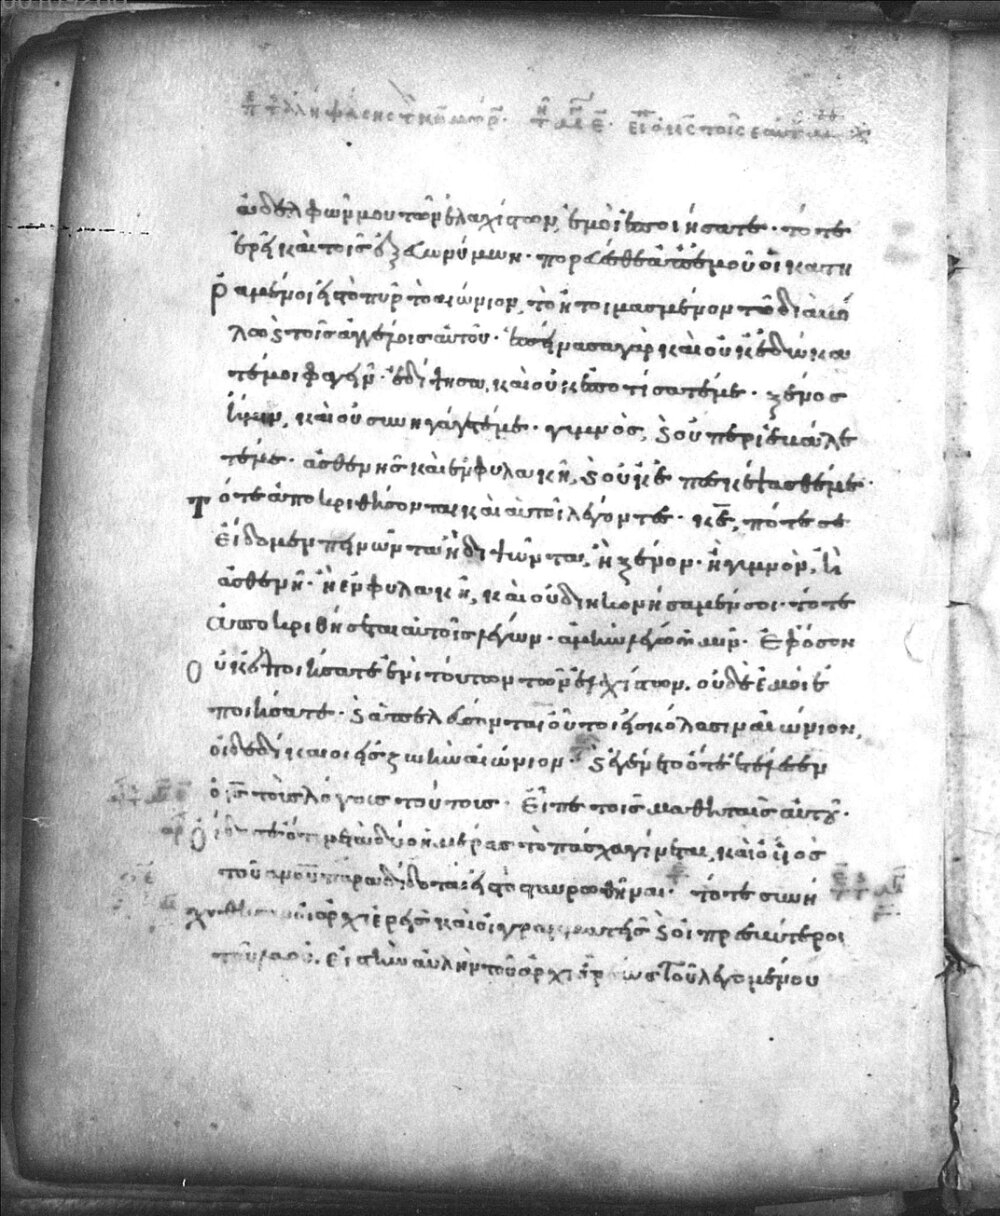 ἀδελφῶν μου τῶν ἐλαχίστων, ἐμοὶ ἐποιήσατε· τότε
ἐρεῖ καὶ τοῖς ἐξ εὐωνύμων· πορεύεσθε ἀπ' ἐμοῦ οἱ κατη
ραμένοι εἰς τὸ πῦρ τὸ αἰώνιον, τὸ ἡτοιμασμένον τῶ διαβό
λω ϗ τοῖς ἀγγέλοις αὐτοῦ· ἐπείνασα γὰρ καὶ οὐκ ἐδώκα
τέ μοι φαγεῖν· ἐδίψησα, καὶ οὐκ ἐποτίσατέ με· ξένος
ἤμην, καὶ οὐ συνηγάγετέ με· γυμνὸς, ϗ οὐ περιεβάλε
τέ με· ἀσθενὴς καὶ ἐν φυλακῆ, ϗ οὐκ ἐπεσκέψασθέ με·
τότε ἀποκριθήσονται καὶ αὐτοὶ λέγοντες· κε, πότε σε
εἴδομεν πεινῶντα ἢ διψῶντα, ἢ ξένον· ἢ γυμνὸν, ἢ
ἀσθενῆ· ἢ ἐν φυλακῆ, καὶ οὐ διηκονήσαμέν σοι· τότε
ἀποκριθήσεται αὐτοῖς λέγων· ἀμὴν λέγω ὑμῖν· ἐφόσον
οὐκ ἐποιήσατε ἑνὶ τούτων τῶν ἐλαχίστων, οὐδὲ ἐμοὶ ἐ
ποιήσατε· ϗ ἀπελεύσονται οὗτοι εἰς κόλασιν αἰώνιον,
οἱ δὲ δίκαιοι εἰς ζωὴν αἰώνιον· ϗ ἐγένετο ὅτε ἐτέλεσεν
ὁ ις τοὺς λόγους τούτους· εἶπε τοῖς μαθηταῖς αὐτοῦ·
οἴδατε ὅτι μετὰ δύο ἡμέρας τὸ πάσχα γίνεται, καὶ ὁ υἱὸς
τοῦ ανου παραδίδοται εἰς τὸ σταυρωθῆναι· τότε συνή
χθησαν οἱ ἀρχιερεῖς καὶ οἱ γραμματεῖς ϗ οἱ πρεσβύτεροι
τοῦ λαοῦ, εἰς τὴν αὐλὴν τοῦ ἀρχιερέως τοῦ λεγομένου